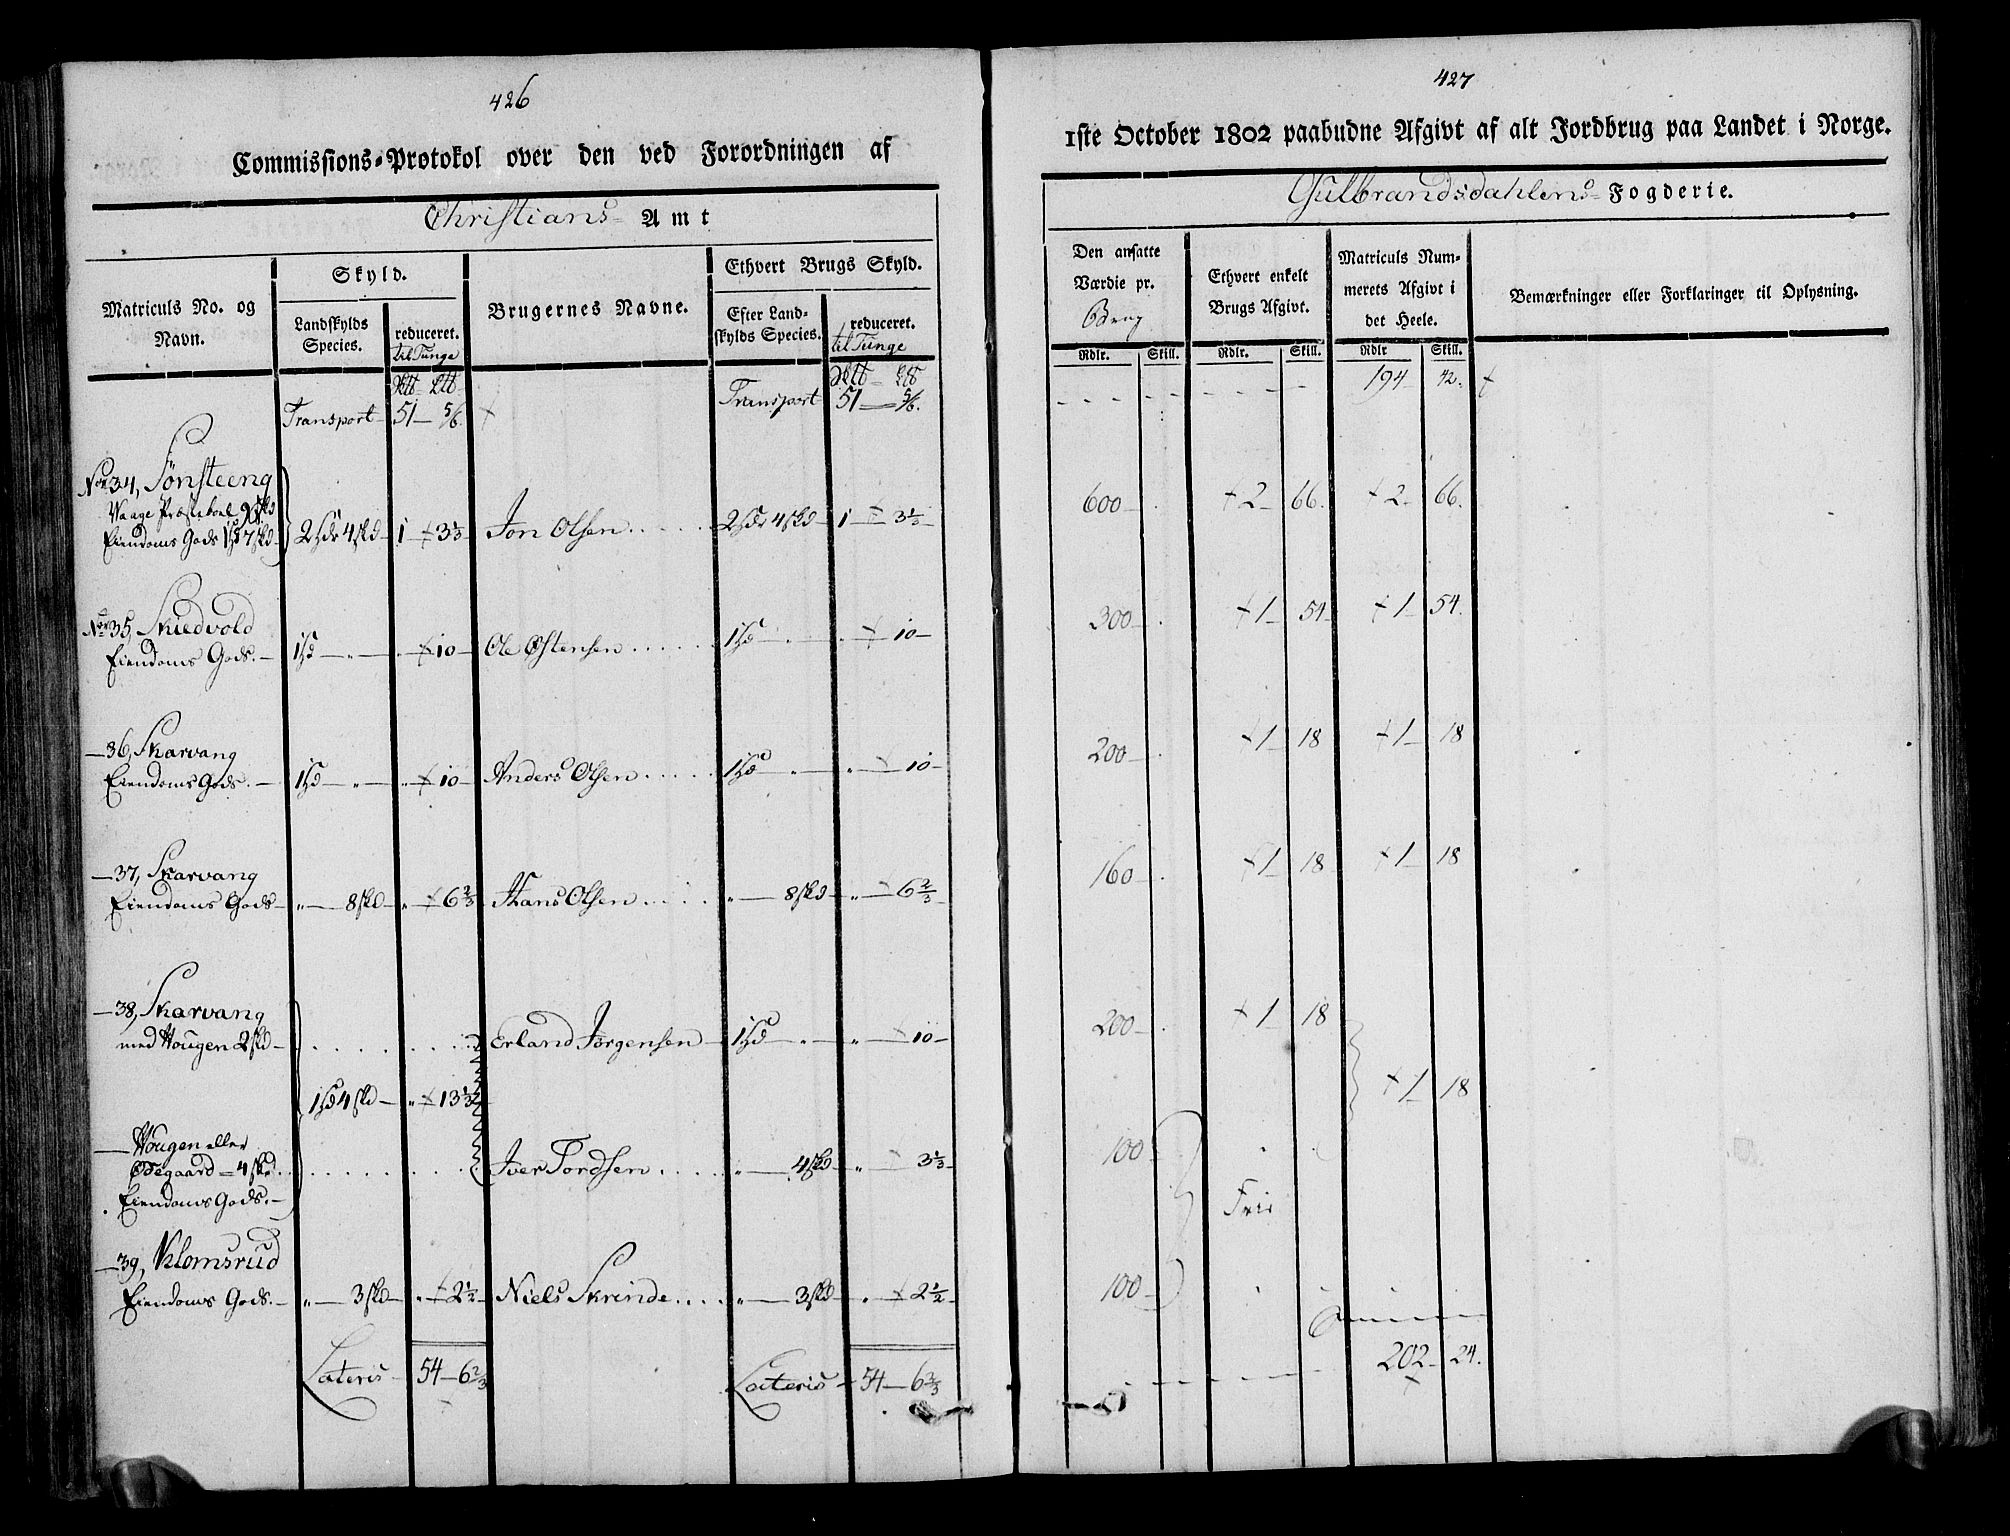 426
Commissions-Protokol over den ved Forordningen af
Christians- Amt
Matriculs No. og Navn.
Skyld.
Landskylds Species.
reduceret. til Tunge
Brugernes Navne.
Ethvert Brugs Skyld.
Efter Landskylds Species.
reduceret. til Tunge
Transport 51 — 5/6. Transport 51 — 5/6.
No 34, Sønsteeng
Vaage Præsteboel 9 skd
Eiendoms Gods 1 hd 7 skd 2 hdr 4 skd 1 3 1/3 Jon Olsen 2 hdr 4 skd 1 3 1/3
No 35, Skiedvold
Eiendoms Gods. 1 hd 10 Ole Østensen 1 hd 10
36, Skarvang
Eiendoms Gods. 1 hd 10 Anders Olsen 1 hd 10
37, Skarvang
Eiendoms Gods 8 skd 6 2/3 Hans Olsen 8 skd 6 2/3
38, Skarvang
med Hougen 2 skd Erland Jörgensen 1 hd 10
1 hd 4 skd 13 1/3
Hougen eller
Ödegaard = 4 skd Iver Tordsen 4 skd 3 1/3
Eiendoms Gods.
39, Klomsrud
Eiendoms Gods. 3 skd 2 1/2 Niels Skrinde 3 skd 2 1/2
Lateris 54 — 6 2/3 Lateris 54 — 6 2/3
427
1ste October 1802 paabudne Afgivt af alt Jordbrug paa Landet i Norge.
Gulbrandsdahlens- Fogderie.
Den ansatte Værdie pr. Brug
Ethvert enkelt Brugs Afgivt.
Matriculs Nummerets Afgivt i det Heele.
Bemærkninger eller Forklaringer til Oplysning.
Rdlr. Skill. Rdlr. Skill. Rdlr Skill.
194 42.
600 2 66. 2 66.
300 1 54 1 54.
200 1 18 1 18
160 1 18 1 18
200 1 18
1 18
100
Fri
100
202 24.